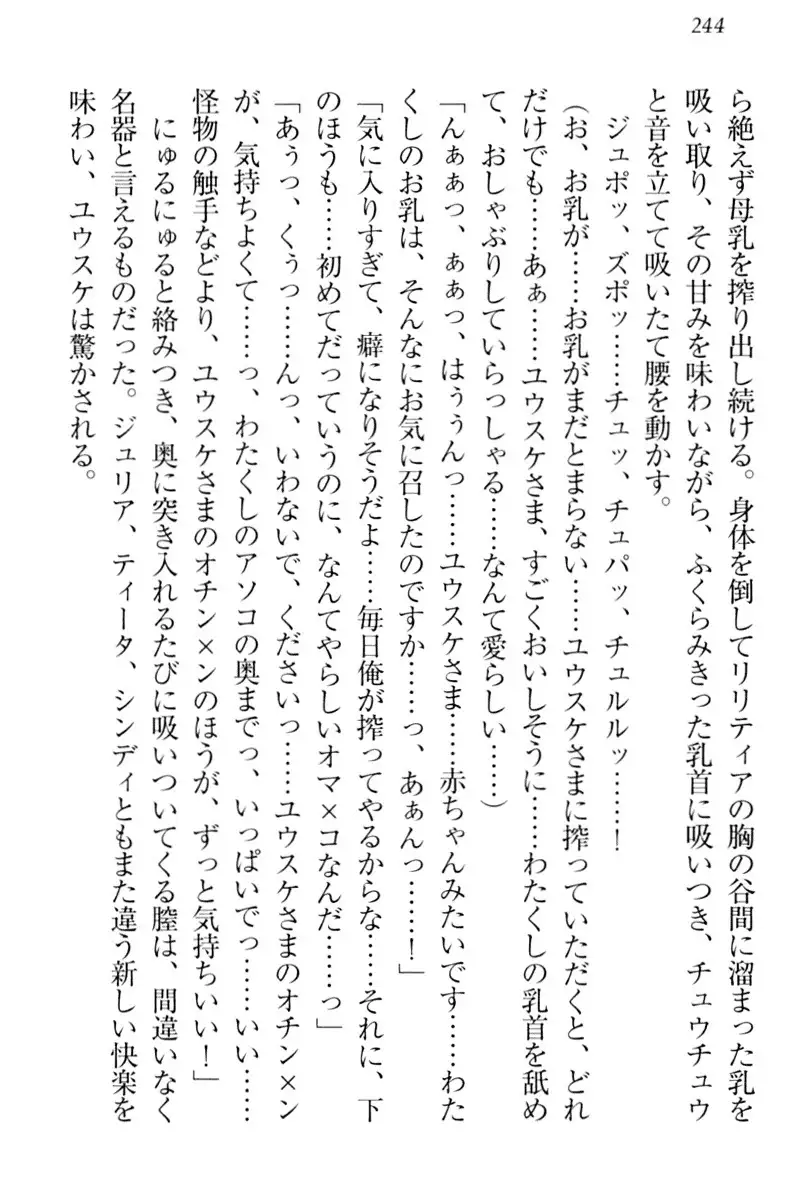 244
ら絶えず母乳を搾り出し続ける。身体を倒してリリティアの胸の谷間に溜まった乳を
吸い取り、その甘みを味わいながら、ふくらみきった乳首に吸いつき、チュウチュウ
と音を立てて吸いたて腰を動かす。
ジュポッ、ズポッ……チュッ、チュパッ、チュルルッ……！
（お、お乳が……お乳がまだとまらない……ユウスケさまに搾っていただくと、どれ
だけでも……あぁ……ユウスケさま、すごくおいしそうに……わたくしの乳首を舐め
て、おしゃぶりしていらっしゃる……なんて愛らしい……）
「んぁぁっ、ぁぁっ、はぅぅんっ……ユウスケさま……赤ちゃんみたいです……わた
くしのお乳は、そんなにお気に召したのですか……っ、あぁんっ……！」
「気に入りすぎて、癖になりそうだよ……毎日俺が搾ってやるからな……それに、下
のほうも……初めてだっていうのに、なんてやらしいオマ×コなんだ……っ」
「あぅっ、くぅっ……んっ、いわないで、くださいっ……ユウスケさまのオチン×ン
が、気持ちよくて……っ、わたくしのアソコの奥までっ、いっぱいでっ……いい……
怪物の触手などより、ユウスケさまのオチン×ンのほうが、ずっと気持ちいい！」
にゅるにゅると絡みつき、奥に突き入れるたびに吸いついてくる膣は、間違いなく
名器と言えるものだった。ジュリア、ティータ、シンディともまた違う新しい快楽を
味わい、ユウスケは驚かされる。